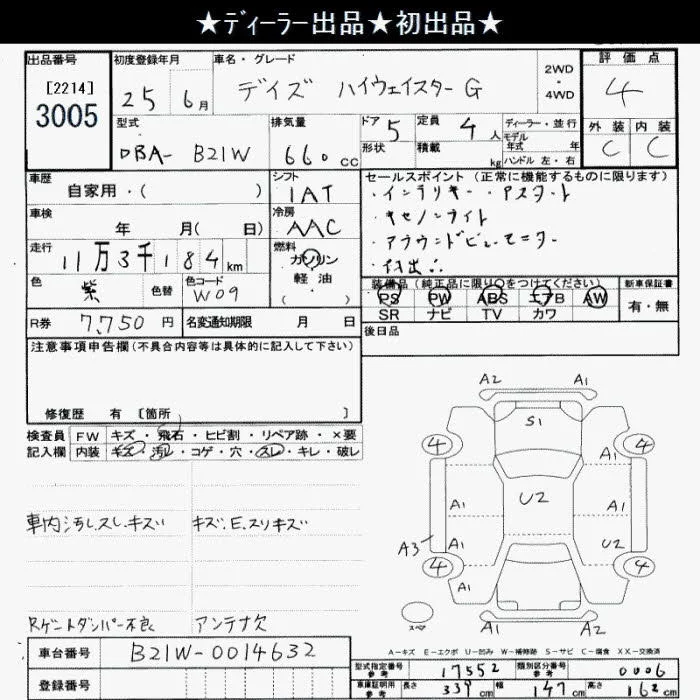 ★ディーラー出品★初出品★
出品番号
[2214]
3005
初度登録年月
25 6月
車名・グレード
デイズ ハイウェイスター G
2WD
・
4WD
評価点
4
外装 内装
C C
型式
DBA- B21W
排気量
660 cc
ドア 5
形状
定員 4人
積載 kg
ディーラー・並行
モデル年式 年
ハンドル 左・右
車歴
自家用・( )
シフト
IAT
セールスポイント (正常に機能するものに限ります)
・インテリキー・アスタート
・キセノンライト
・アラウンドビューモニター
車検
年 月( 日)
冷房
AAC
走行
11万3千184km
燃料
ガソリン
軽油
( )
色
紫
色替
色コード
W09
装備品(純正品に限り○をつけてください)
PS PW ABS エアB AW
SR ナビ TV カワ
新車保証書
有・無
R券 7,750 円
名変通知期限 月 日
後日品
注意事項申告欄(不具合内容等は具体的に記入して下さい)
修復歴 有 〔箇所 〕
検査員記入欄
FW キズ・飛石・ヒビ割・リペア跡・×要
内装 キズ・汚レ・コゲ・穴・スレ・キレ・破レ
車内汚レ.スレ.キズ
キズ.E.スリキズ
Rゲートダンパー不良
アンテナ欠
A2 A1
S1
4 4
A1 A1
U2
A1 A1
A3 A1 U2
4 4
A1
A1 A2
スペア
A-キズ E-エクボ U-凹み W-補修跡 S-サビ C-腐食 XX-交換済
車台番号 B21W-0014632
登録番号
型式指定番号 参考 17552
類別区分番号 参考 0006
車庫証明用 参考 長さ 339cm 幅 147cm 高さ 162cm